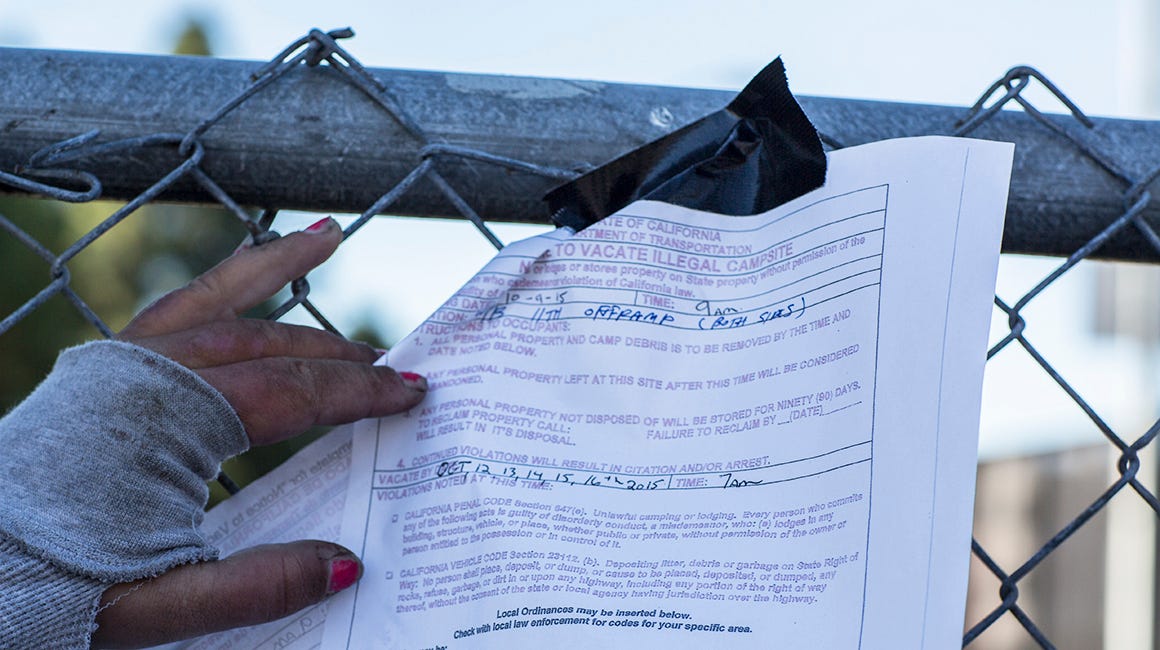 STATE OF CALIFORNIA
DEPARTMENT OF TRANSPORTATION
TO VACATE ILLEGAL CAMPSITE
or lodges or stores property on State property without permission of the
violation of California law.
DATE 10-9-15 TIME: 9am
11TH OFFRAMP (BOTH SIDES)
INSTRUCTIONS TO OCCUPANTS:
1. ALL PERSONAL PROPERTY AND CAMP DEBRIS IS TO BE REMOVED BY THE TIME AND
DATE NOTED BELOW.
ANY PERSONAL PROPERTY LEFT AT THIS SITE AFTER THIS TIME WILL BE CONSIDERED
ABANDONED.
ANY PERSONAL PROPERTY NOT DISPOSED OF WILL BE STORED FOR NINETY (90) DAYS.
TO RECLAIM PROPERTY CALL: FAILURE TO RECLAIM BY __(DATE)______
WILL RESULT IN IT'S DISPOSAL.
4. CONTINUED VIOLATIONS WILL RESULT IN CITATION AND/OR ARREST.
VACATE BY OCT, 12, 13, 14, 15, 16TH 2015 TIME: 7am
VIOLATIONS NOTED AT THIS TIME:
CALIFORNIA PENAL CODE Section 647(e). Unlawful camping or lodging. Every person who commits
any of the following acts is guilty of disorderly conduct, a misdemeanor, who: (e) lodges in any
building, structure, vehicle, or place, whether public or private, without permission of the owner or
person entitled to the possession or in control of it.
CALIFORNIA VEHICLE CODE Section 23112. (b). Depositing litter, debris or garbage on State Right of
Way: No person shall place, deposit, or dump, or cause to be placed, deposited, or dumped, any
rocks, refuse, garbage, or dirt in or upon any highway, including any portion of the right of way
thereof, without the consent of the state or local agency having jurisdiction over the highway.
Local Ordinances may be inserted below.
Check with local law enforcement for codes for your specific area.